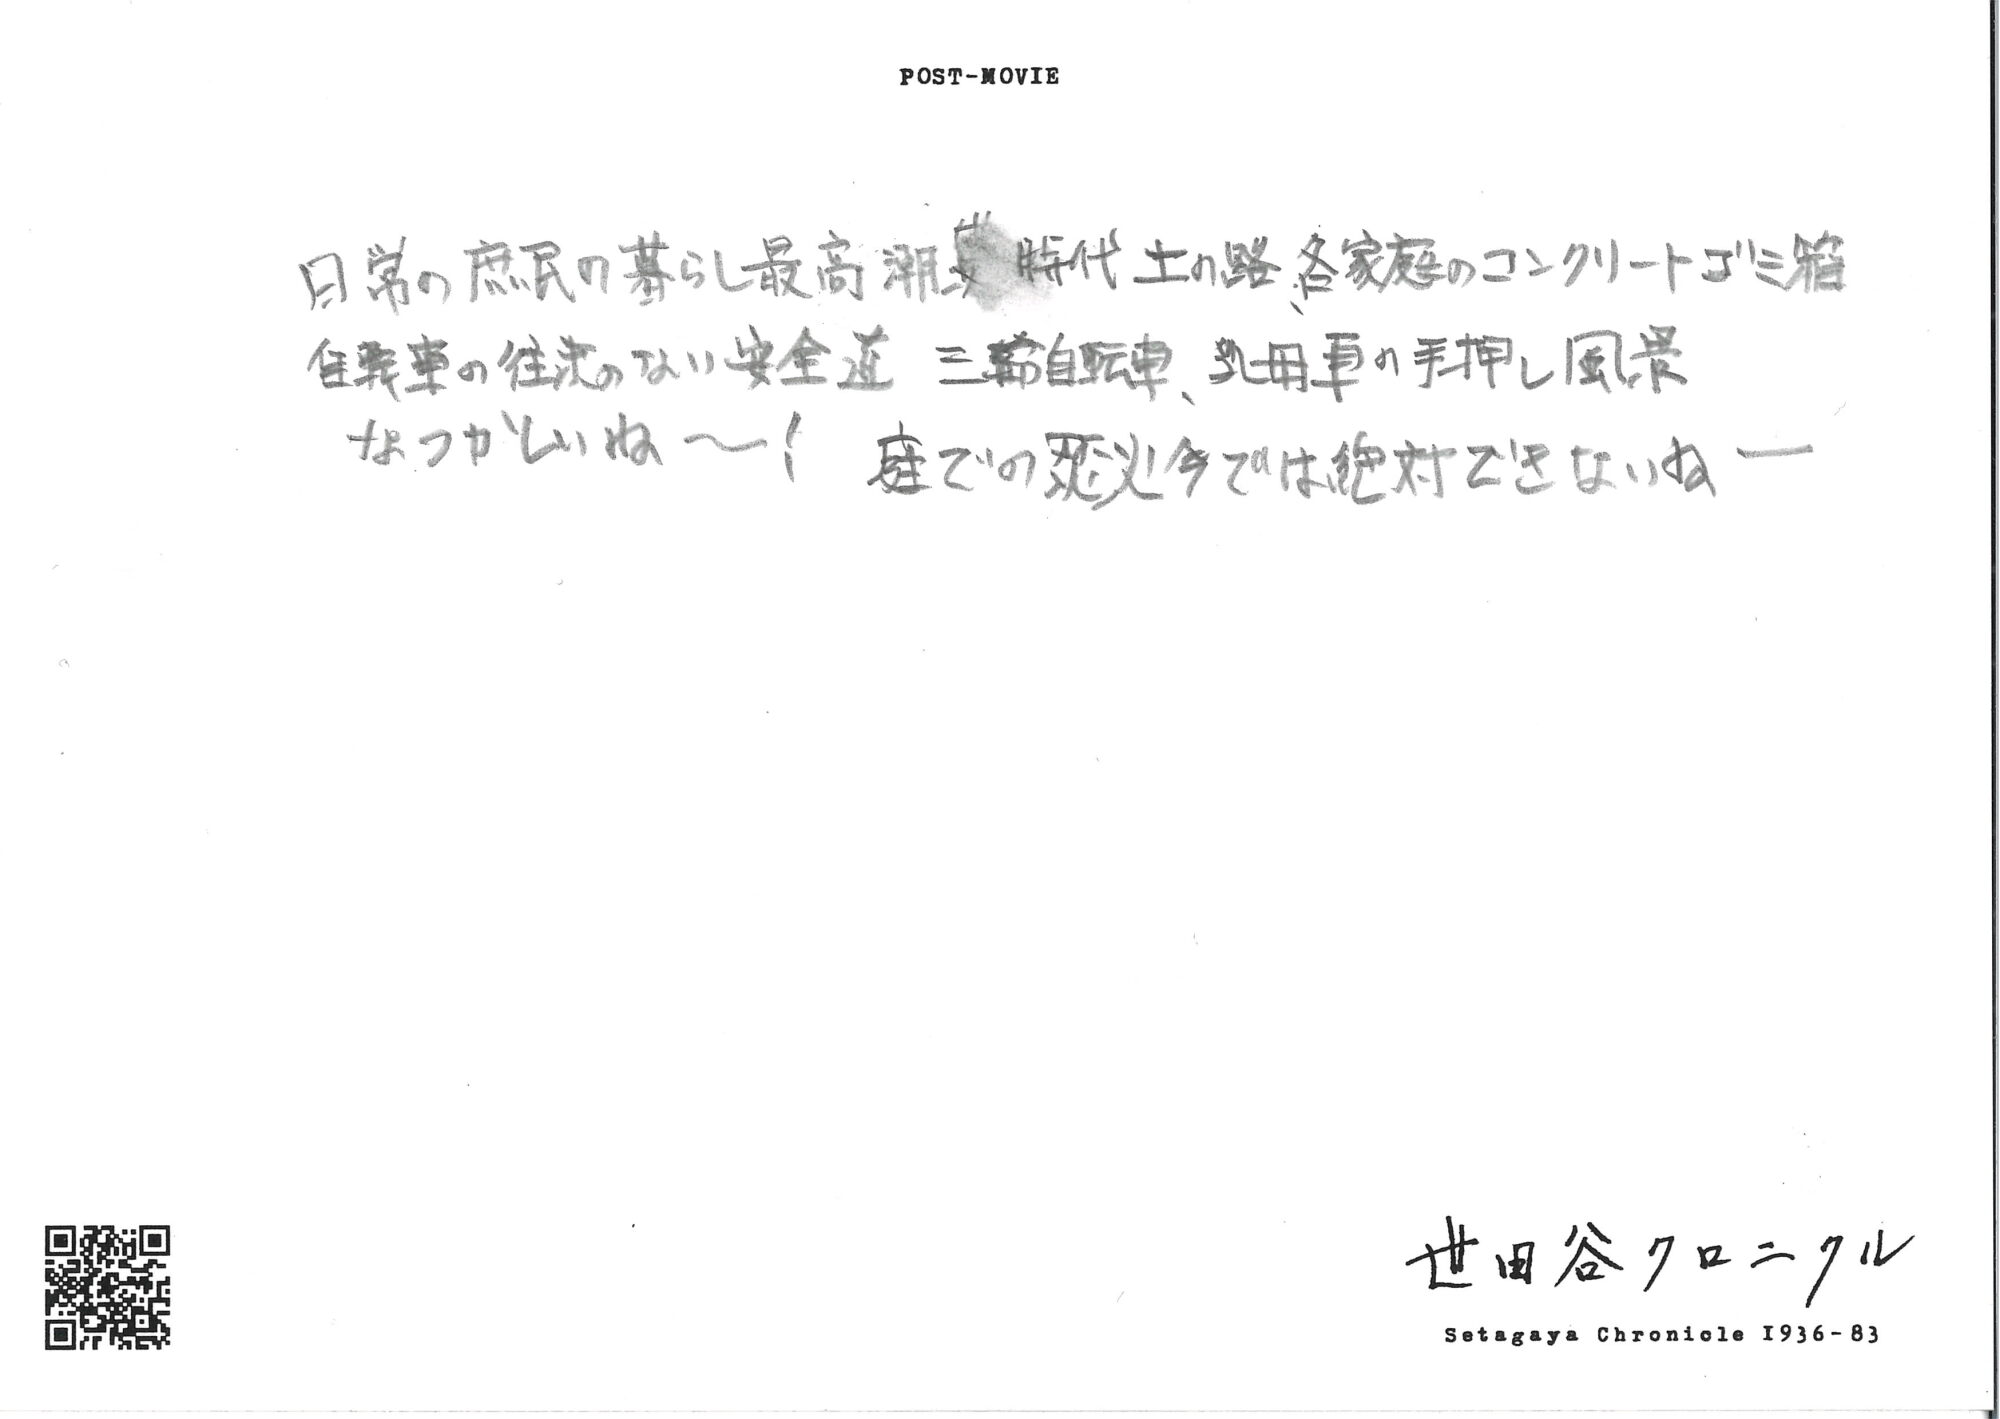 POST-MOVIE
日常の庶民の暮らし最高潮 時代 土の路、各家庭のコンクリートゴミ箱
自転車の往来のない安全道 三輪自転車、乳母車の手押し風景
なつかしいね〜! 庭での焚火今では絶対できないねー
世田谷クロニクル
Setagaya Chronicle 1936-83